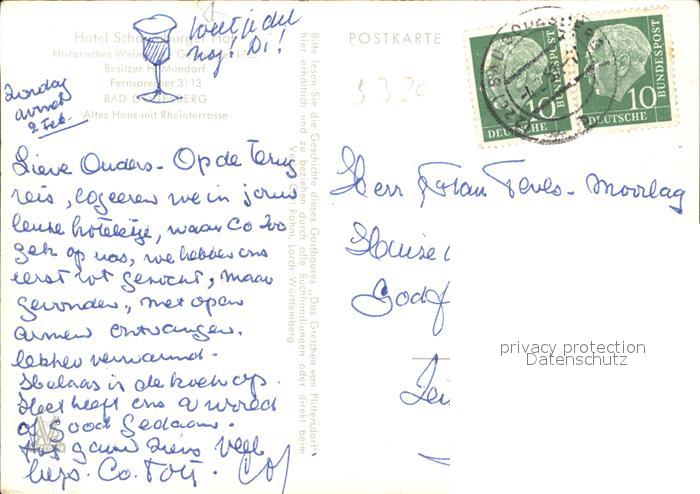 Hotel Scha
Historisches Wein
Besitzer H. Mundorf
Fernsprecher 3113
BAD
Altes Haus mit Rheinterrasse
weet je dit
nog! Di!
Zondag
avond
2 Feb.
Lieve Ouders - Op de terug
reis, logeeren we in jouw
leuke hotelletje, waar Co zo
gek op was, we hebben ons
eerst rot gezocht, maar
gevonden, met open
armen ontvangen.
lekker verwarmd.
Helaas is de koek op.
Het heeft ons a world
of good gedaan.
tot gauw ziens veel
liefs. Co. Tot
Bitte lesen Sie die Geschichte dieses Gasthauses „Das Gretchen von Plittersdorf"
hier erhältlich und zu beziehen durch alle Buchhandlungen oder direkt beim
Röhm, Lorch Württemberg
POSTKARTE
10
DEUTSCHE BUNDESPOST
10
DEUTSCHE BUNDESPOST
Herr Frau - Moorlag
Huize
Godf
Zei
privacy protection
Datenschutz